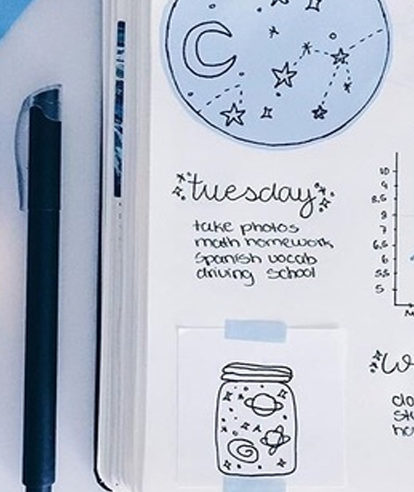 tuesday
take photos
math homework
spanish vocab
driving school
10
9
8.5
8
7
6.5
6
5.5
5